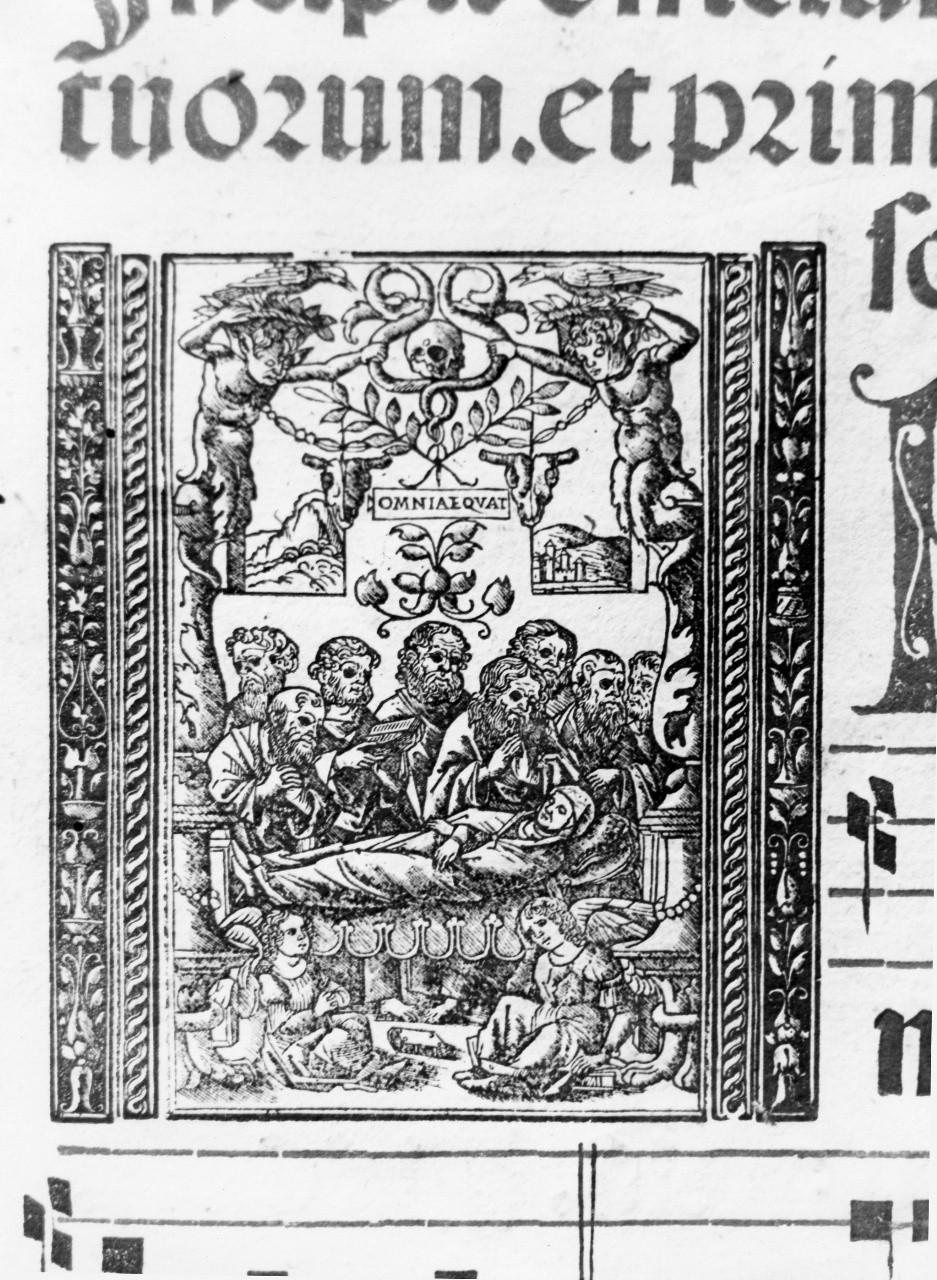 tuorum. et prim
so
OMNIAEQVAT
n